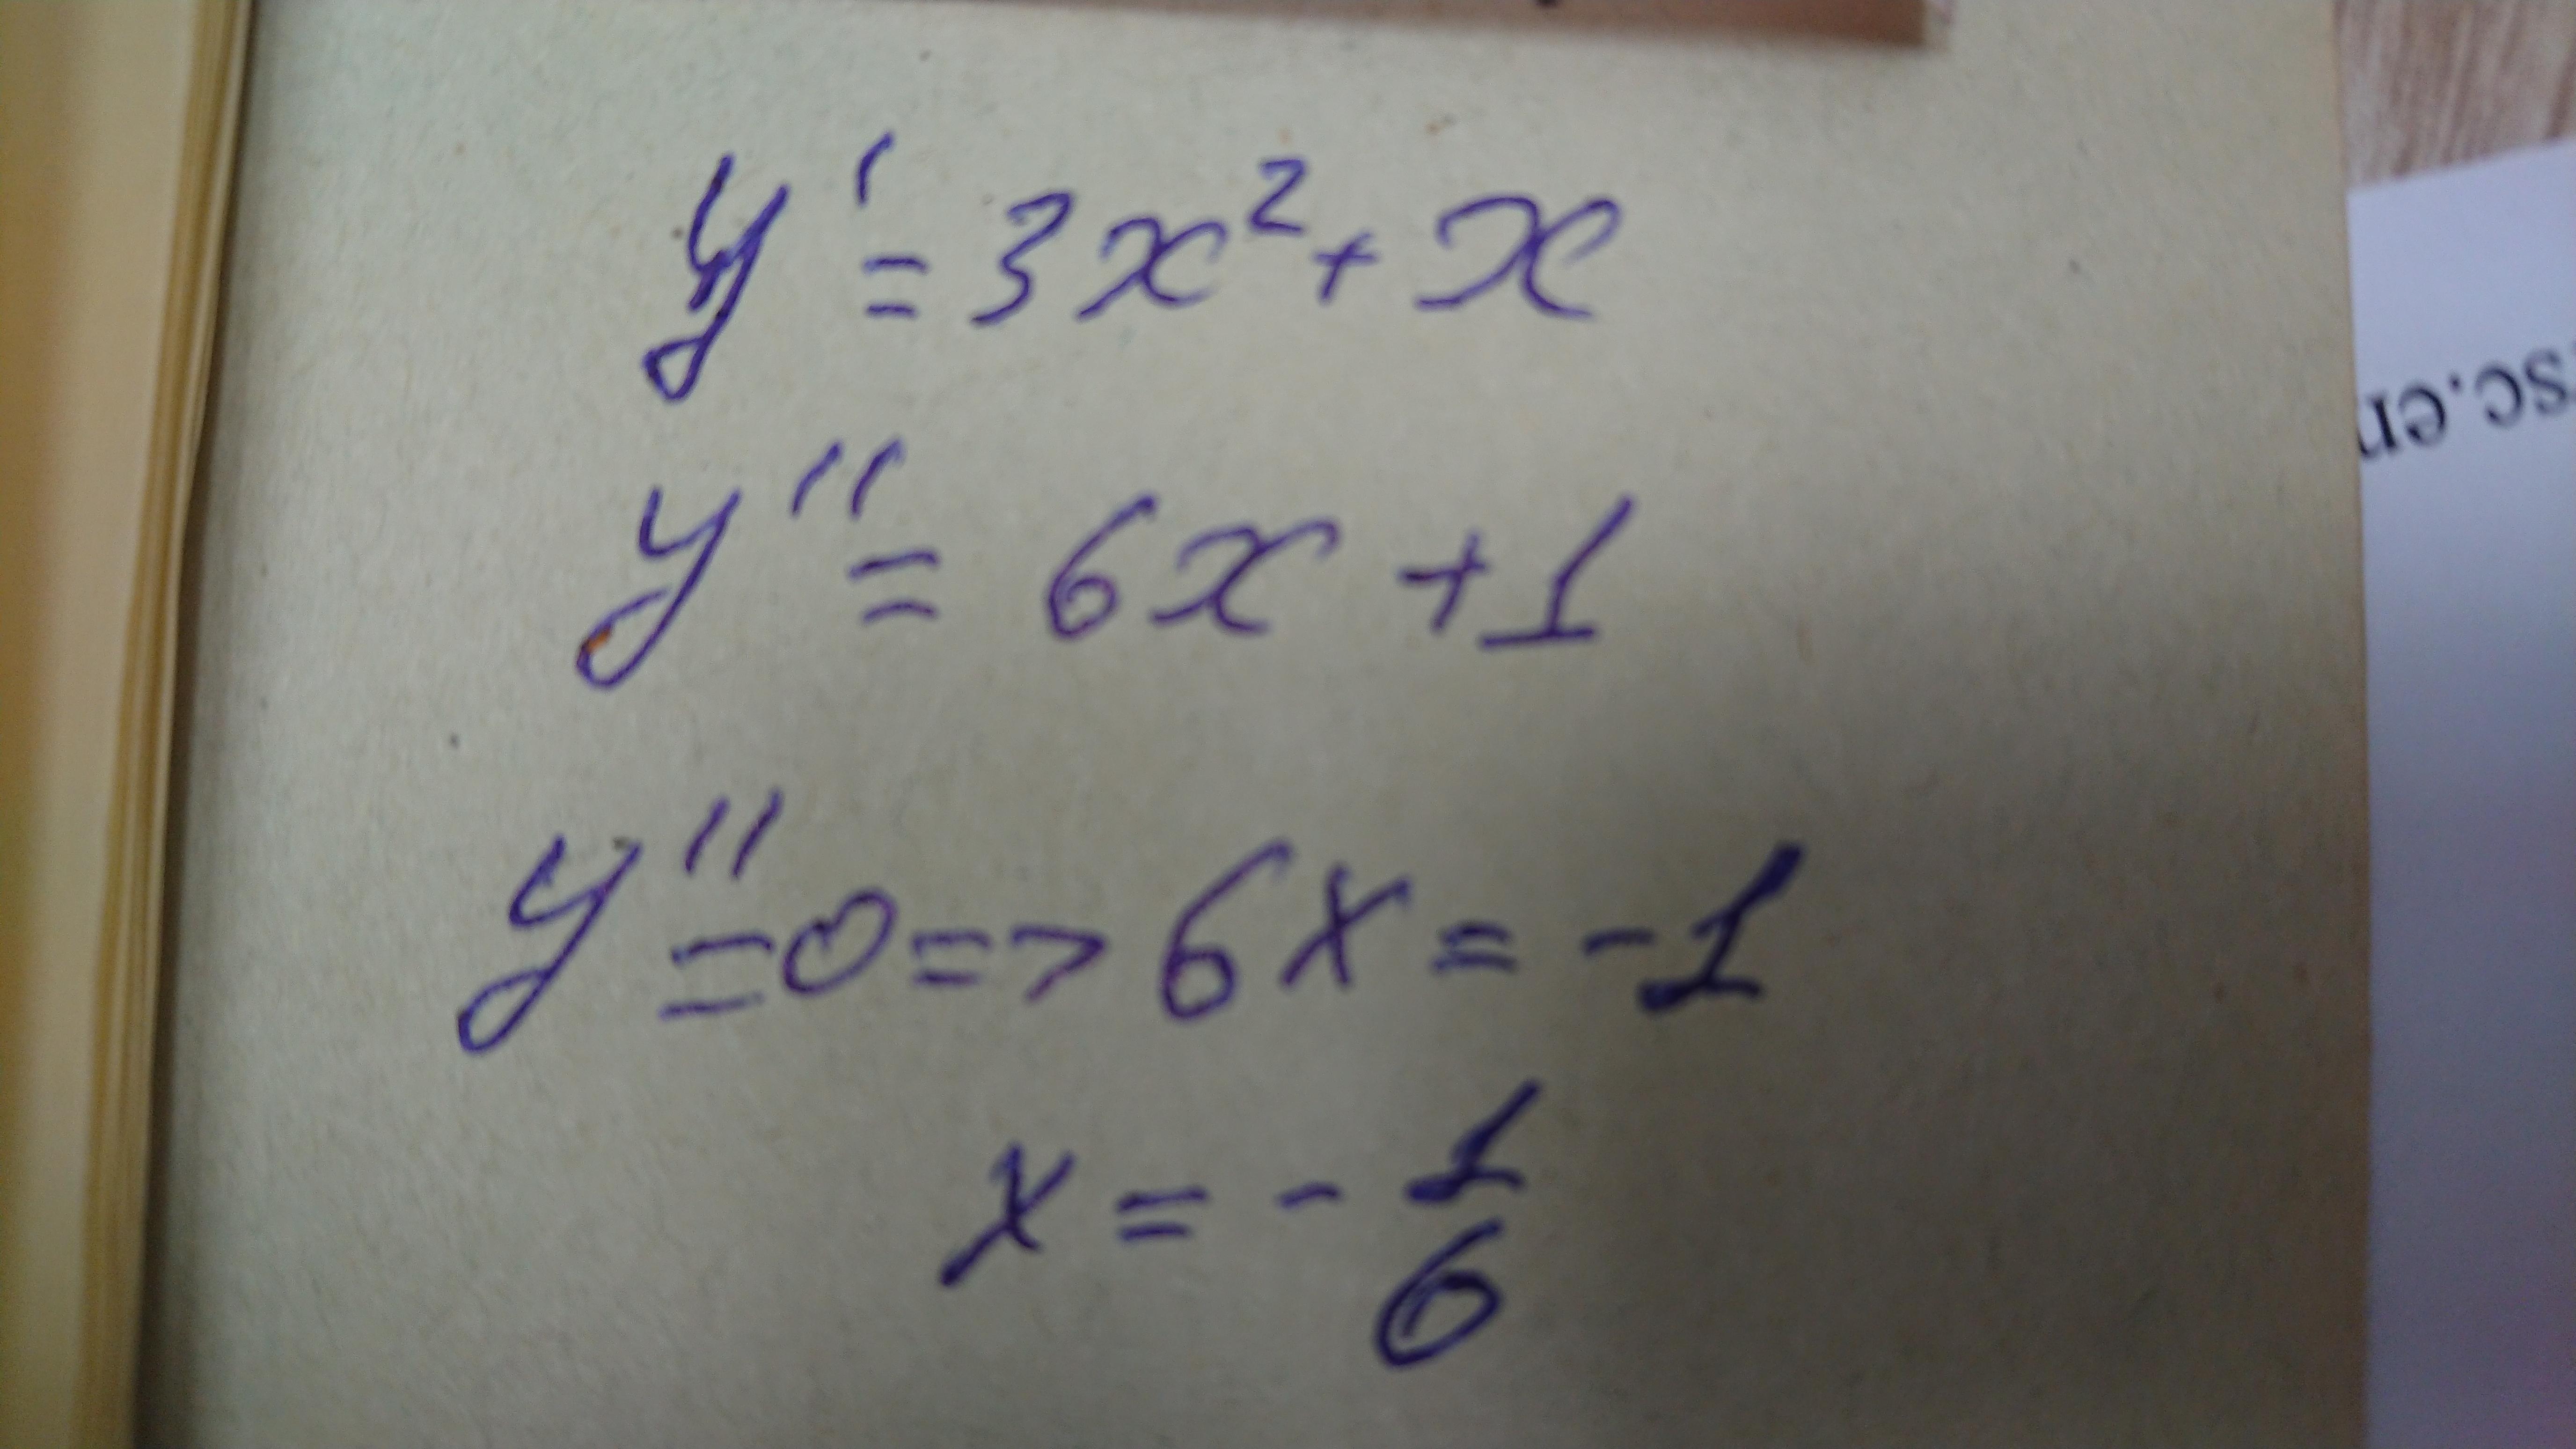 y' = 3x² + x
y'' = 6x + 1
y'' = 0 => 6x = -1
x = - 1/6